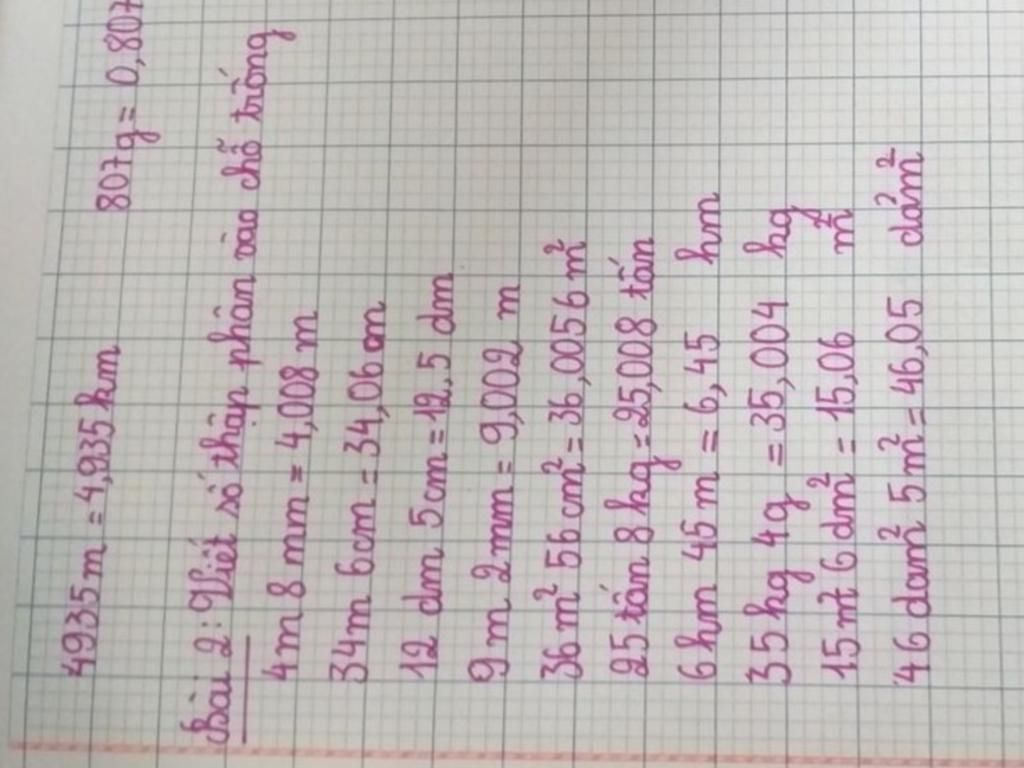 4935m = 4,935km 807g = 0,807
Bài 2: Viết số thập phân vào chỗ trống
4m 8 mm = 4,008 m
34m 6cm = 34,06 m
12 dm 5cm = 12,5 dm
9 m 2mm = 9,002 m
36 m² 56 cm² = 36,0056 m²
25 tấn 8 kg = 25,008 tấn
6 hm 45 m = 6,45 hm
35 kg 4g = 35,004 kg
15 m² 6 dm² = 15,06 m²
46 dam² 5 m² = 46,05 dam²